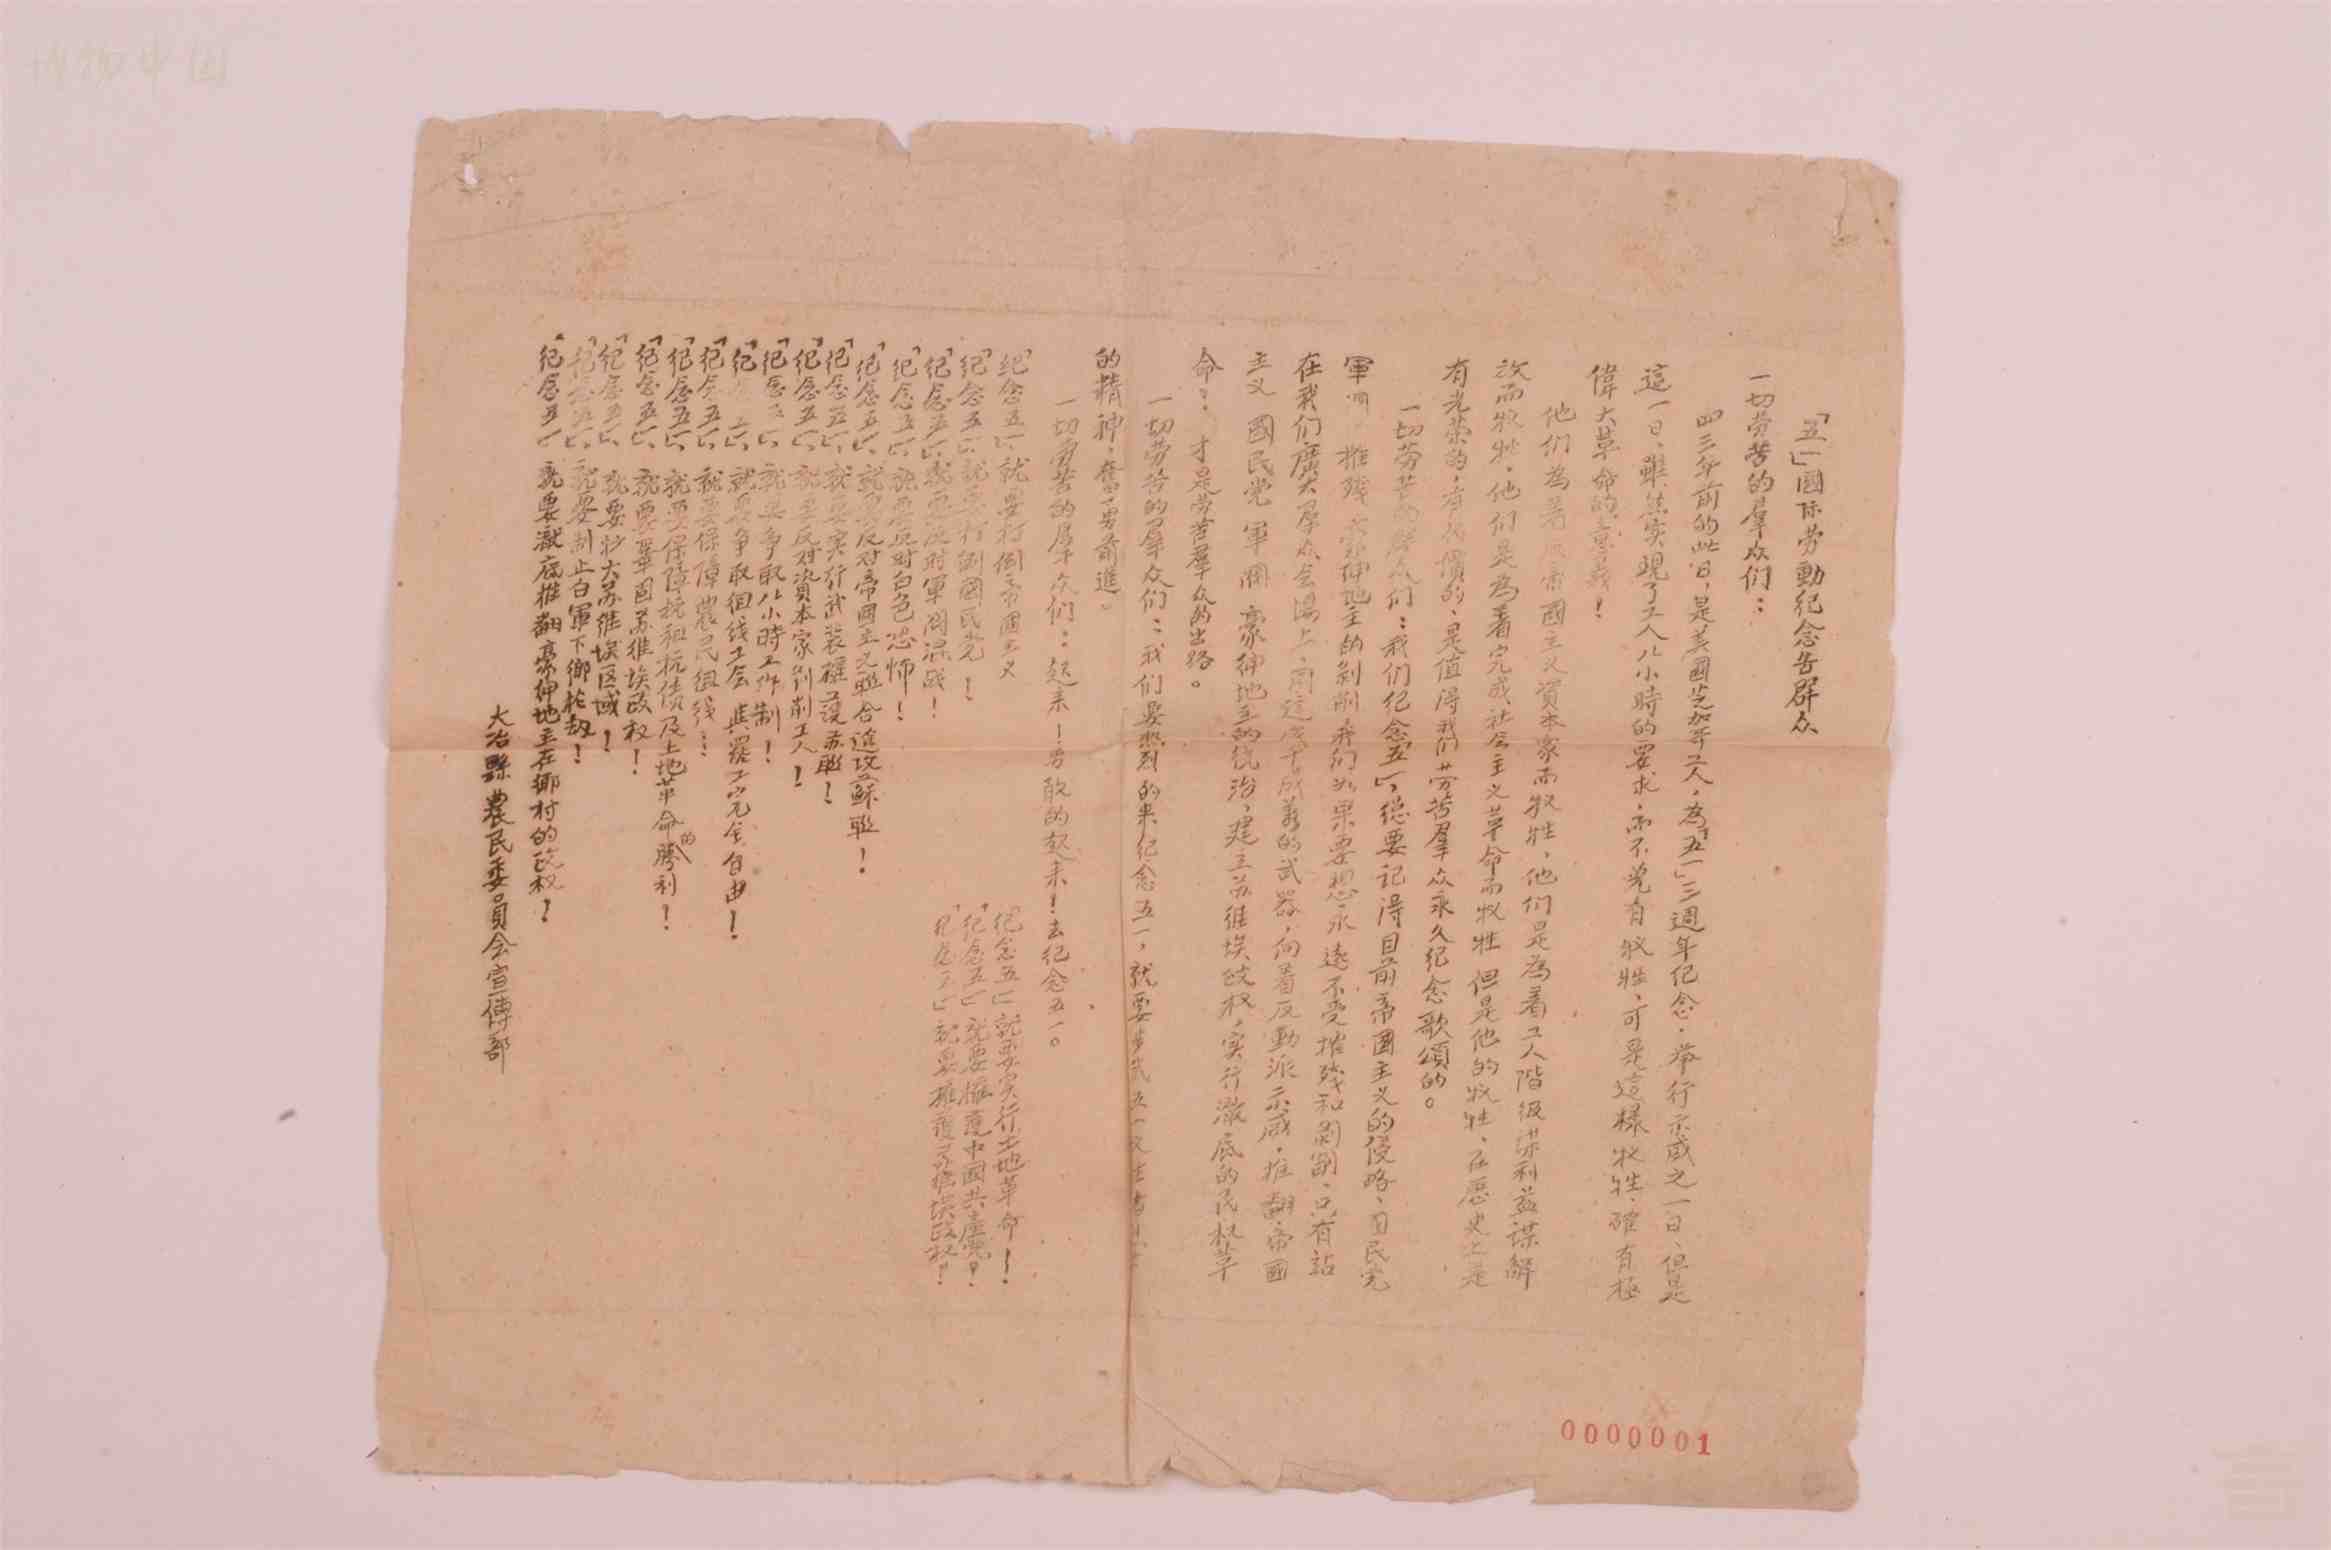 「五一」國际劳動纪念告群众
一切劳苦的羣众们：
四三年前的此日，是美國芝加哥工人，為「五一」三週年纪念，举行示威之一日、但是
這一日、雖然实現了工人八小時的要求，而不免有牧牲、可是這樣牧牲，確有極
偉大革命的意義！
他们為着反帝國主义資本家而牧牲，他们是為着工人階级谋利益谋解
放而牧牲，他们是為着完成社会主义革命而牧牲 但是他的牧牲、在歷史上是
有光荣的，有代價的、是值得我们劳苦羣众永久纪念歌頌的。
一切劳苦的羣众们：我们纪念「五一」，總要记得目前帝國主义的侵略、囯民党
軍 摧残 豪绅地主的剝削 我们如果要想永遠不受摧残和剝削、只有站
在我们廣大羣众会場上、用這成千成萬的武器，向着反動派示威，推翻帝國
主义 國民党 軍閥 豪绅地主的统治，建立苏维埃政权，实行澈底的民权革
命：才是劳苦羣众的出路。
一切劳苦的羣众们：我们要熱烈的来纪念五一，就要
的精神，奮勇前進。
一切劳苦的羣众们：起来！勇敢的起来！去纪念五一。
「纪念五一」就要打倒帝國主义
「纪念五一」就要打倒國民党！
「纪念五一」就要反对軍閥混战！
「纪念五一」就要反对白色恐怖！
「纪念五一」就要反对帝國主义聯合進攻蘇聯！
「纪念五一」就要实行武装擁護苏聯！
「纪念五一」就要反对資本家剝削工人！
「纪念五一」就要争取八小時工作制！
「纪念五一」就要争取组线工会 與罢工完全自由！
「纪念五一」就要保障農民组线！
「纪念五一」就要保障抗租抗债及土地革命的勝利！
「纪念五一」就要鞏固苏维埃政权！
「纪念五一」就要扩大苏维埃区域！
「纪念五一」就要制止白軍下鄉抢劫！
「纪念五一」就要澈底推翻豪绅地主在鄉村的政权！
「纪念五一」就要实行土地革命！
「纪念五一」就要擁護中國共產党！
「纪念五一」就要擁護苏维埃政权！
大冶縣農民委員会宣傳部
0000001
博物中国